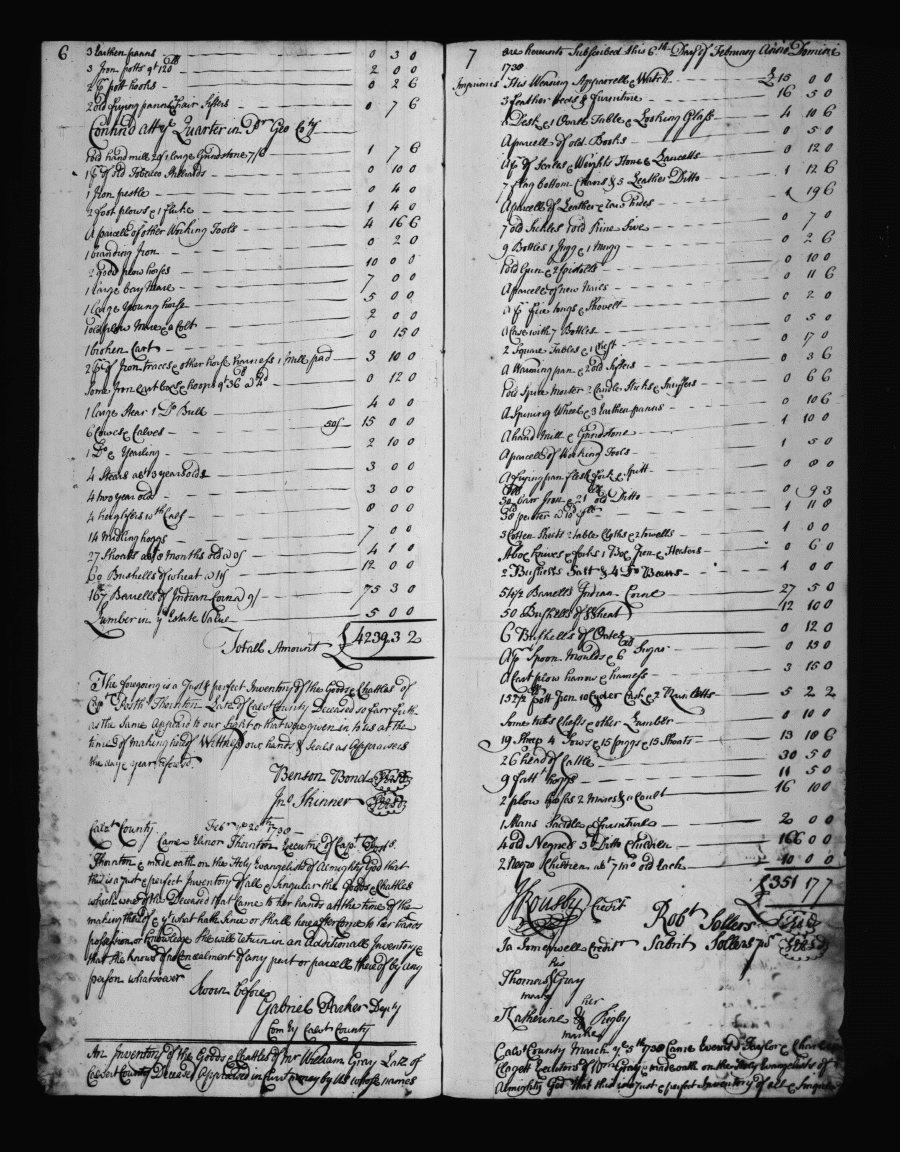 6
3 Earthen panns 0 3 0
3 Iron potts qt 120 lb 2 0 0
2 pr pott hooks 0 2 6
2 old frying panns & hair Sifters 0 7 6
Contin'd att ye Quarter in Pr Geo Coty
1 old hand mill 20/ 1 large Grindstone 7/6 1 7 6
1 pr of old Tobacco Stilliards 0 10 0
1 Iron pestle 0 4 0
2 foot plows & 1 fluke 1 4 0
A parcell of other Working Tools 4 16 6
1 branding Iron 0 2 0
2 good plow horses 10 0 0
1 large bay Mare 7 0 0
1 large young horse 5 0 0
1 old plow Mare & a Colt 2 0 0
1 broken Cart 0 15 0
2 pr of Iron traces & other horse harness 1 mill pad 3 10 0
Some Iron cart boxes & hoops qt 36 lb @ 4d 0 12 0
1 large Stear 1 Do Bull 4 0 0
6 Cowes & Calves 50/ 15 0 0
1 Do & Yearling 2 10 0
4 Stears abt 3 years olds 3 0 0
4 two year old 3 0 0
4 heighfers wth Calf 8 0 0
14 Midling hoggs 7 0 0
27 Shoats abt 8 months old @ 3/ 4 1 0
60 Bushells of wheat @ 4/ 12 0 0
167 Barrells of Indian Corn @ 9/ 75 3 0
Lumber in ye Estate Value 5 0 0
Totall Amount £ 4239 3 2
The foregoing is a Just & perfect Inventory of the Goods & Chattles of
Capt Posth: Thornton Late of Calvt County Deceased so farr forth
as the Same Appeard to our Sight or that were given in to us at the
time of making hereof Wittness our hands & Seals as Appraisers
the day & year afored
Benson Bond Seal
Jno Skinner Seal
Calvt County Febr ye 20th 1730
Came Elinor Thornton Executrix of Capt Posths
Thornton & made oath on the Holy Evangelist of Almighty God that
this is a Just & perfect Inventory of all & Singular the Goods & Chattles
which were of the Deceased that Came to her hands att the time of the
making thereof & yt what hath Since or Shall hereafter Come to her hands
possession or knowledge She will return in an Additionall Inventory &
that She knows of no Concealment of any part or parcell thereof by any
person whatsoever
Sworn before
Gabriel Parker Depty
Comry Calvt County
An Inventory of the Goods & Chattles of Mr William Gray Late of
Calvert County Deceased Appraised in Currt money by us whose names
7
are hereunto Subscribed this 6th Day of February Anno Domini
1730
Imprimis This Wearing Apparrell & Watch £ 15 0 0
3 feather beds & furniture 16 5 0
1 Desk 1 Ovall Table & Looking Glass 4 10 6
A parcell of old Books 0 5 0
A pr of Scales & Weights Hone & Lancetts 0 12 0
7 flag bottom Chairs & 5 Leather Ditto 1 12 6
A parcell of Leather & raw hides 1 19 6
7 old Sickles 1 old Fine Sive 0 7 0
9 Bottles 1 Jugg & 1 Mugg 0 2 6
1 old Gun & 2 pistolls 0 10 0
A parcell of new Nails 0 11 6
A pr fire tongs & Shovell 0 2 0
A Case with 7 Bottles 0 5 0
2 Square Tables & 1 Chest 0 17 0
A Warming pan & 2 old Sifters 0 3 6
1 old Spice Morter 2 Candle Sticks & Snuffers 0 6 6
A Spining Wheel & 3 Earthen panns 0 10 6
A hand Mill & Grindstone 1 10 0
A parcell of Working Tools 1 5 0
A frying pan flesh fork & Spitt 0 8 0
30 lb barr Iron & 21 lb old Ditto 0 9 3
38 lb pewter @ 10d pr lb 1 11 8
3 Cotten Sheets 2 table Cloths & 2 towells 1 0 0
A box knives & forks 1 Box Iron & Heaters 0 6 0
2 Bushells Salt & 4 Do Beans 1 0 0
54 1/2 Barrells Indian Corne 27 5 0
50 Bushells of Wheat 12 10 0
6 Bushells of Oates 0 12 0
A pr Spoon Moulds & 6 lb Sugar 0 13 0
A Cart plow harrow & harness 3 15 0
152 1/2 lb pott Iron 10 Cyder Cask & 2 Raw Cotts 5 2 2
Some tubs Chests & other Lumber 0 10 0
19 Sheep 4 Sows & 15 piggs & 15 Shoats 13 10 6
26 head of Cattle 30 5 0
9 fatt hoggs 11 5 0
2 plow horses 2 Mares & a Coult 16 10 0
1 Mans Saddle & furniture 2 0 0
4 old Negroes 3 Ditto Children 166 0 0
2 Negro Children abt 7 mo old Each 10 0 0
£ 351 17 7
J Rousby Creditr
Robt Sollers Seal
Ja Somervell Creditr
Sabrit Sollers Seal
his
Thomas Gray
mark
her
Katherine Rigby
marke
Calvt County March ye 5th 1730 Came Everard Taylor & Charles
Clagett Executors of Wm Gray & made oath on the Holy Evangelists of
Almighty God that this is a Just & perfect Inventory of all & Singular